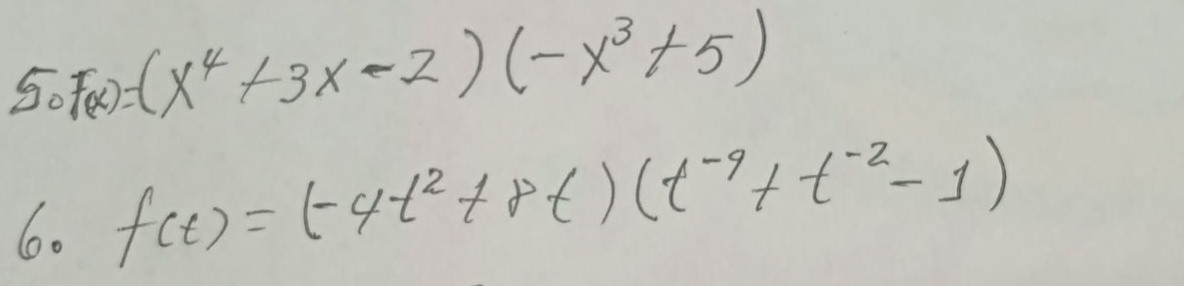 5. F(x)=(x⁴+3x-2)(-x³+5)
6. f(t)=(-4t²+8t)(t⁻⁹+t⁻²-1)